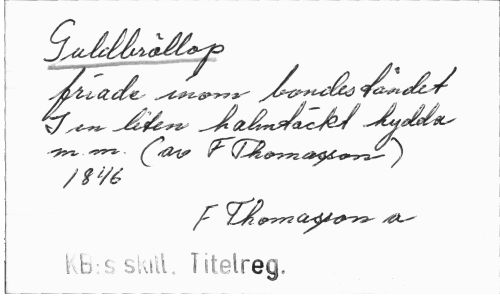 Guldbröllop
firade inom bondeståndet
I en liten halmtäckt hydda
m.m. (av F Thomasson)
1846
F Thomasson a
KB:s skill. Titelreg.